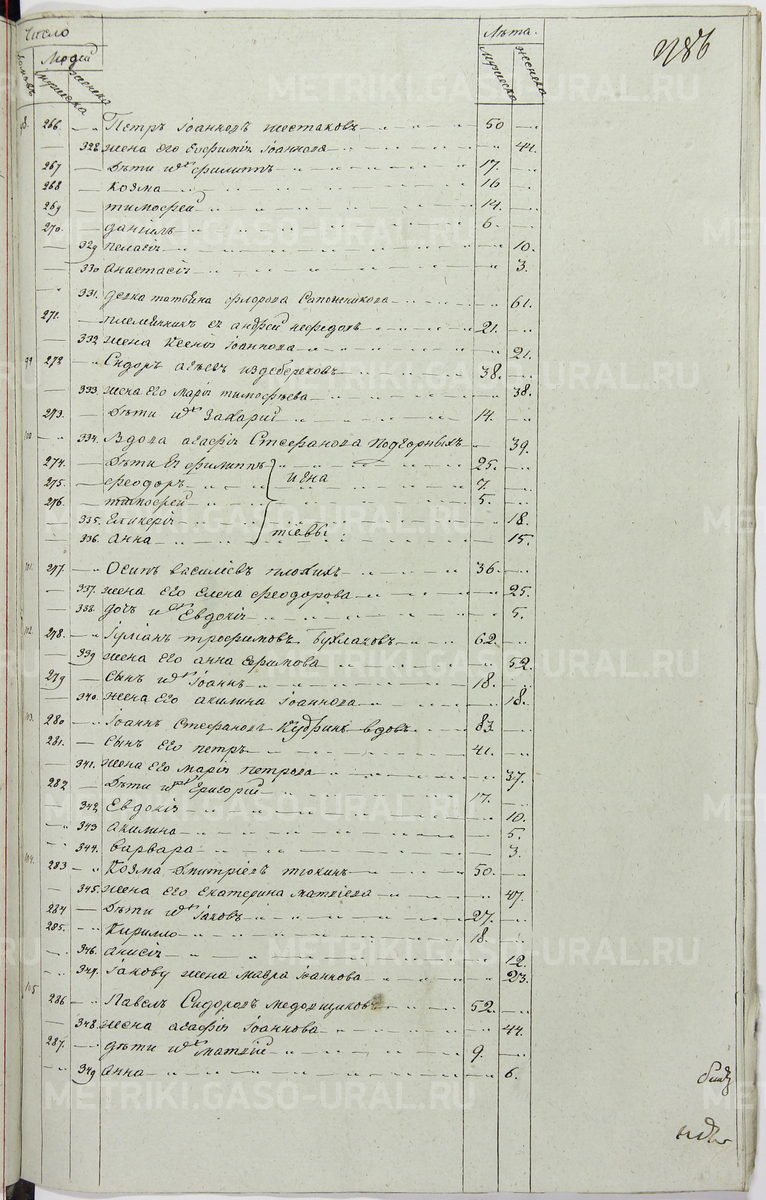 Число
Людей
Лѣта.
мужеска
женска
мужеска
женска
домовъ
98. 266. Петръ Іоанновъ шестаковъ 50
328. жена его Евфимія Іоаннова 44.
267 дѣти ихъ филиппъ 17.
268 козма 16
269 тимофей 14.
270. даніилъ 6.
329 пелагія 10.
330 анастасія 3.
331. девка татьяна флорова Сапожникова 61.
271. племянникъ ея андрей нефедовъ 21.
332. жена ксенія Іоаннова 21.
99 272 Сидоръ агѣевъ издебереховъ 38.
333. жена его марія тимофѣева 38.
273. дѣти ихъ Захарій 14.
100 334. Вдова агафія Стефанова подгорныхъ 39.
274. дѣти ея филиппъ 25.
275. феодоръ 7.
276. тимофей 5.
335. Гликерія 18.
336. анна 15.
101. 277 Осипъ василіевъ плохихъ 36.
337. жена его елена феодорова 25.
338. дочь ихъ Евдокія 5.
102. 278. Іуліанъ трофимовъ бухлаковъ 62.
339 жена его анна ефимова 52.
279 сынъ ихъ Іоаннъ 18.
340. жена его акилина Іоаннова 18.
103. 280 Іоаннъ Стефановъ Кудринъ вдовъ 83.
281. сынъ его петръ 41.
341. жена его марія петрова 37.
282 дѣти ихъ григорій 17.
342. Евдокія 10.
343 акилина 5.
344. варвара 3.
104. 283 Козма дмитріевъ токинъ 50.
345. жена его екатерина матвіева 47.
284 дѣти ихъ Іаковъ 27.
285. Кирилло 18.
346. анисія 12.
347. Іакову жена мавра Іоаннова 23.
105 286 Павелъ Сидоровъ медовщиковъ 52.
348. жена агафія Іоаннова 44.
287. дѣти ихъ матвій 9.
349 анна 6.
METRIKI.GASO-URAL.RU